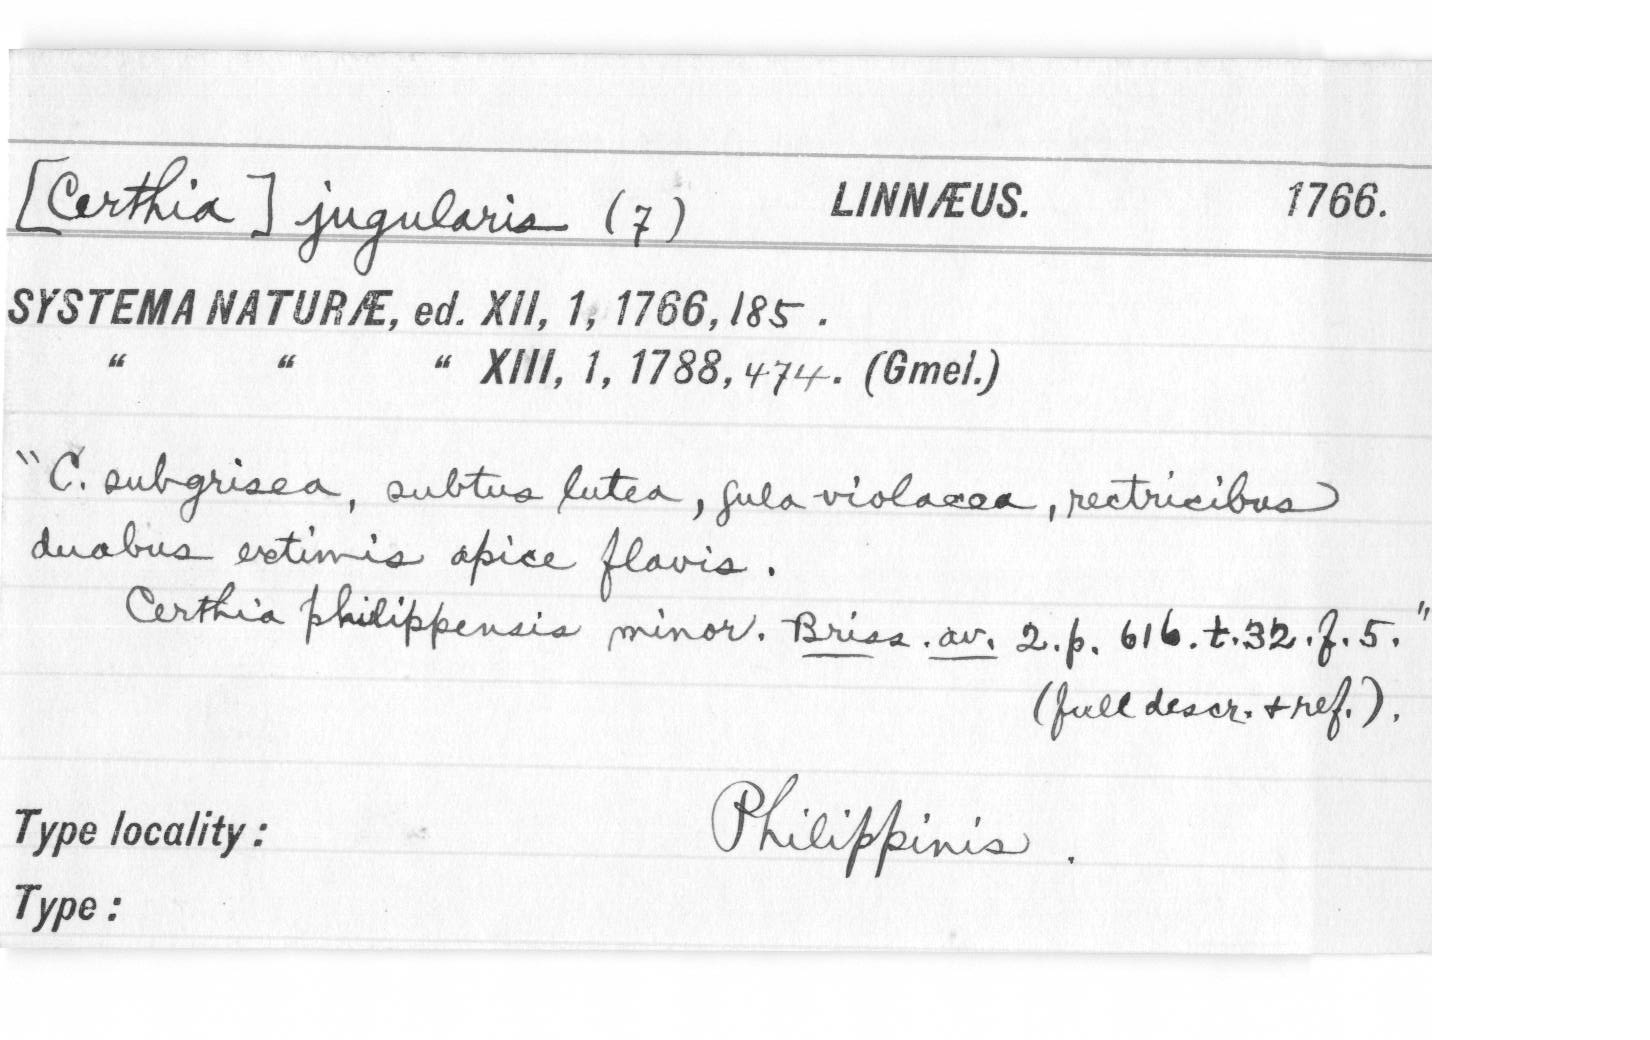 [Certhia] jugularis (7) LINNÆUS. 1766.
SYSTEMA NATURÆ, ed. XII, 1, 1766, 185.
“ “ “ XIII, 1, 1788, 474. (Gmel.)
"C. subgrisea, subtus lutea, gula violacea, rectricibus
duabus extimis apice flavis.
Certhia philippensis minor. Briss. av. 2. p. 616. t. 32. f. 5."
(full descr. + ref.).
Type locality: Philippinis.
Type: